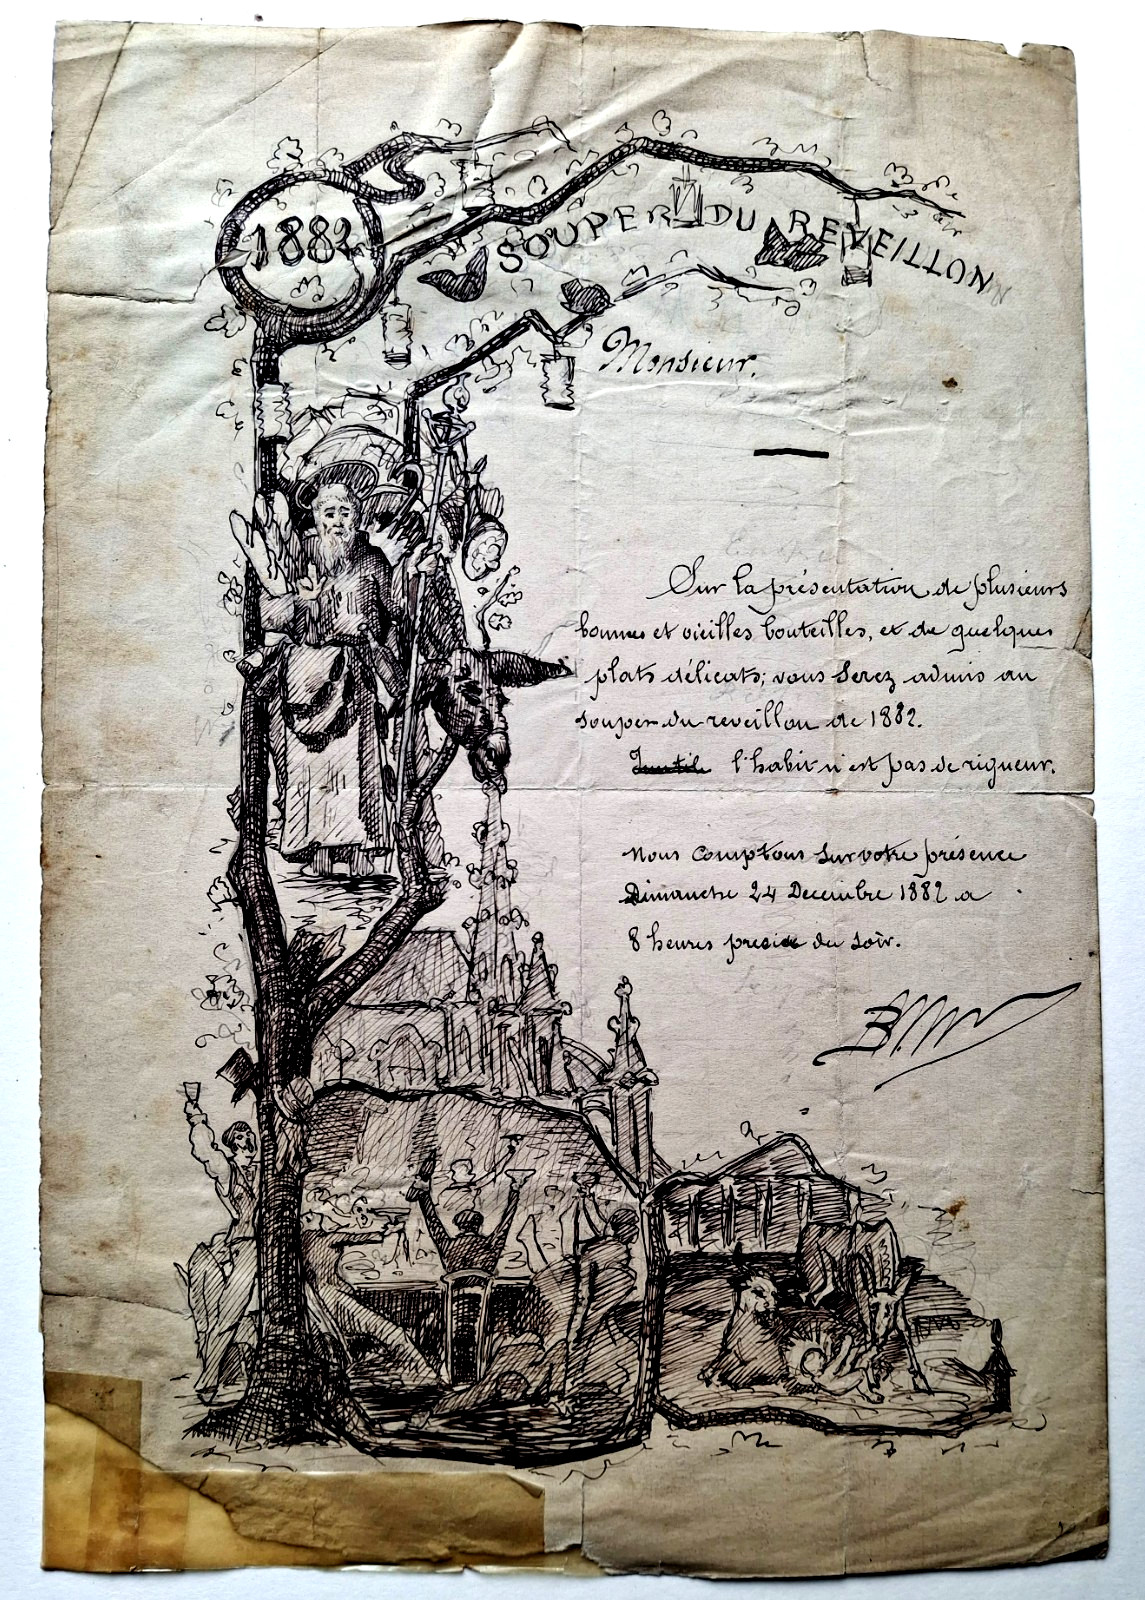 1882
SOUPER DU REVEILLON
Monsieur.
Sur la présentation de plusieurs
bonnes et vieilles bouteilles, et de quelques
plats délicats; vous serez admis au
souper du reveillon de 1882.
l'habit n'est pas de rigueur.
Nous comptons sur votre présence
Dimanche 24 Decembre 1882 a
8 heures du soir.